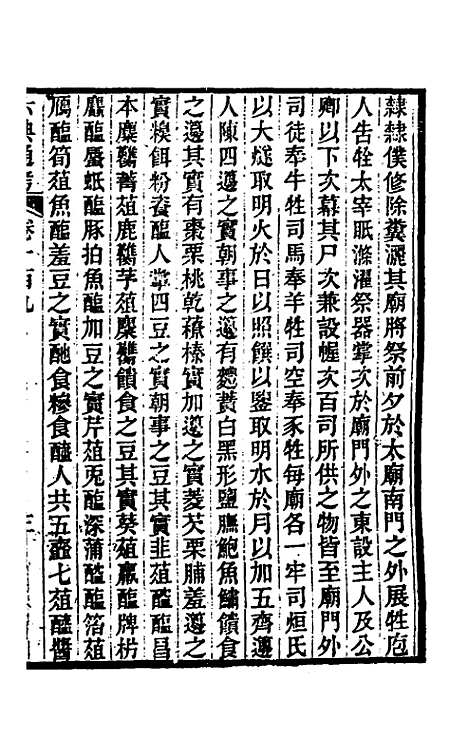 隸隸僕修除糞灑其廟將祭前夕於太廟南門之外展牲庖
人告牷太宰眂滌濯祭器掌次於廟門外之東設主人及公
卿以下次幕其尸次兼設幄次百司所供之物皆至廟門外
司徒奉牛牲司馬奉羊牲司空奉豕牲每廟各一牢司烜氏
以大燧取明火於日以照饌以鑒取明水於月以加五齊籩
人陳四籩之實朝事之籩有麷蕡白黑形鹽膴鮑魚鱐饋食
之籩其實有棗栗桃乾䕩榛實加籩之實菱芡栗脯羞籩之
實糗餌粉餈醢人掌四豆之實朝事之豆其實韭菹醓醢昌
本麋臡菁菹鹿臡茆菹麇臡饋食之豆其實葵菹蠃醢脾析
蠯醢蜃蚳醢豚拍魚醢加豆之實芹菹兎醢深蒲醓醢箔菹
鴈醢筍菹魚醢羞豆之實酏食糝食醯人共五齏七菹醯醬
六典通考 卷一百九 三